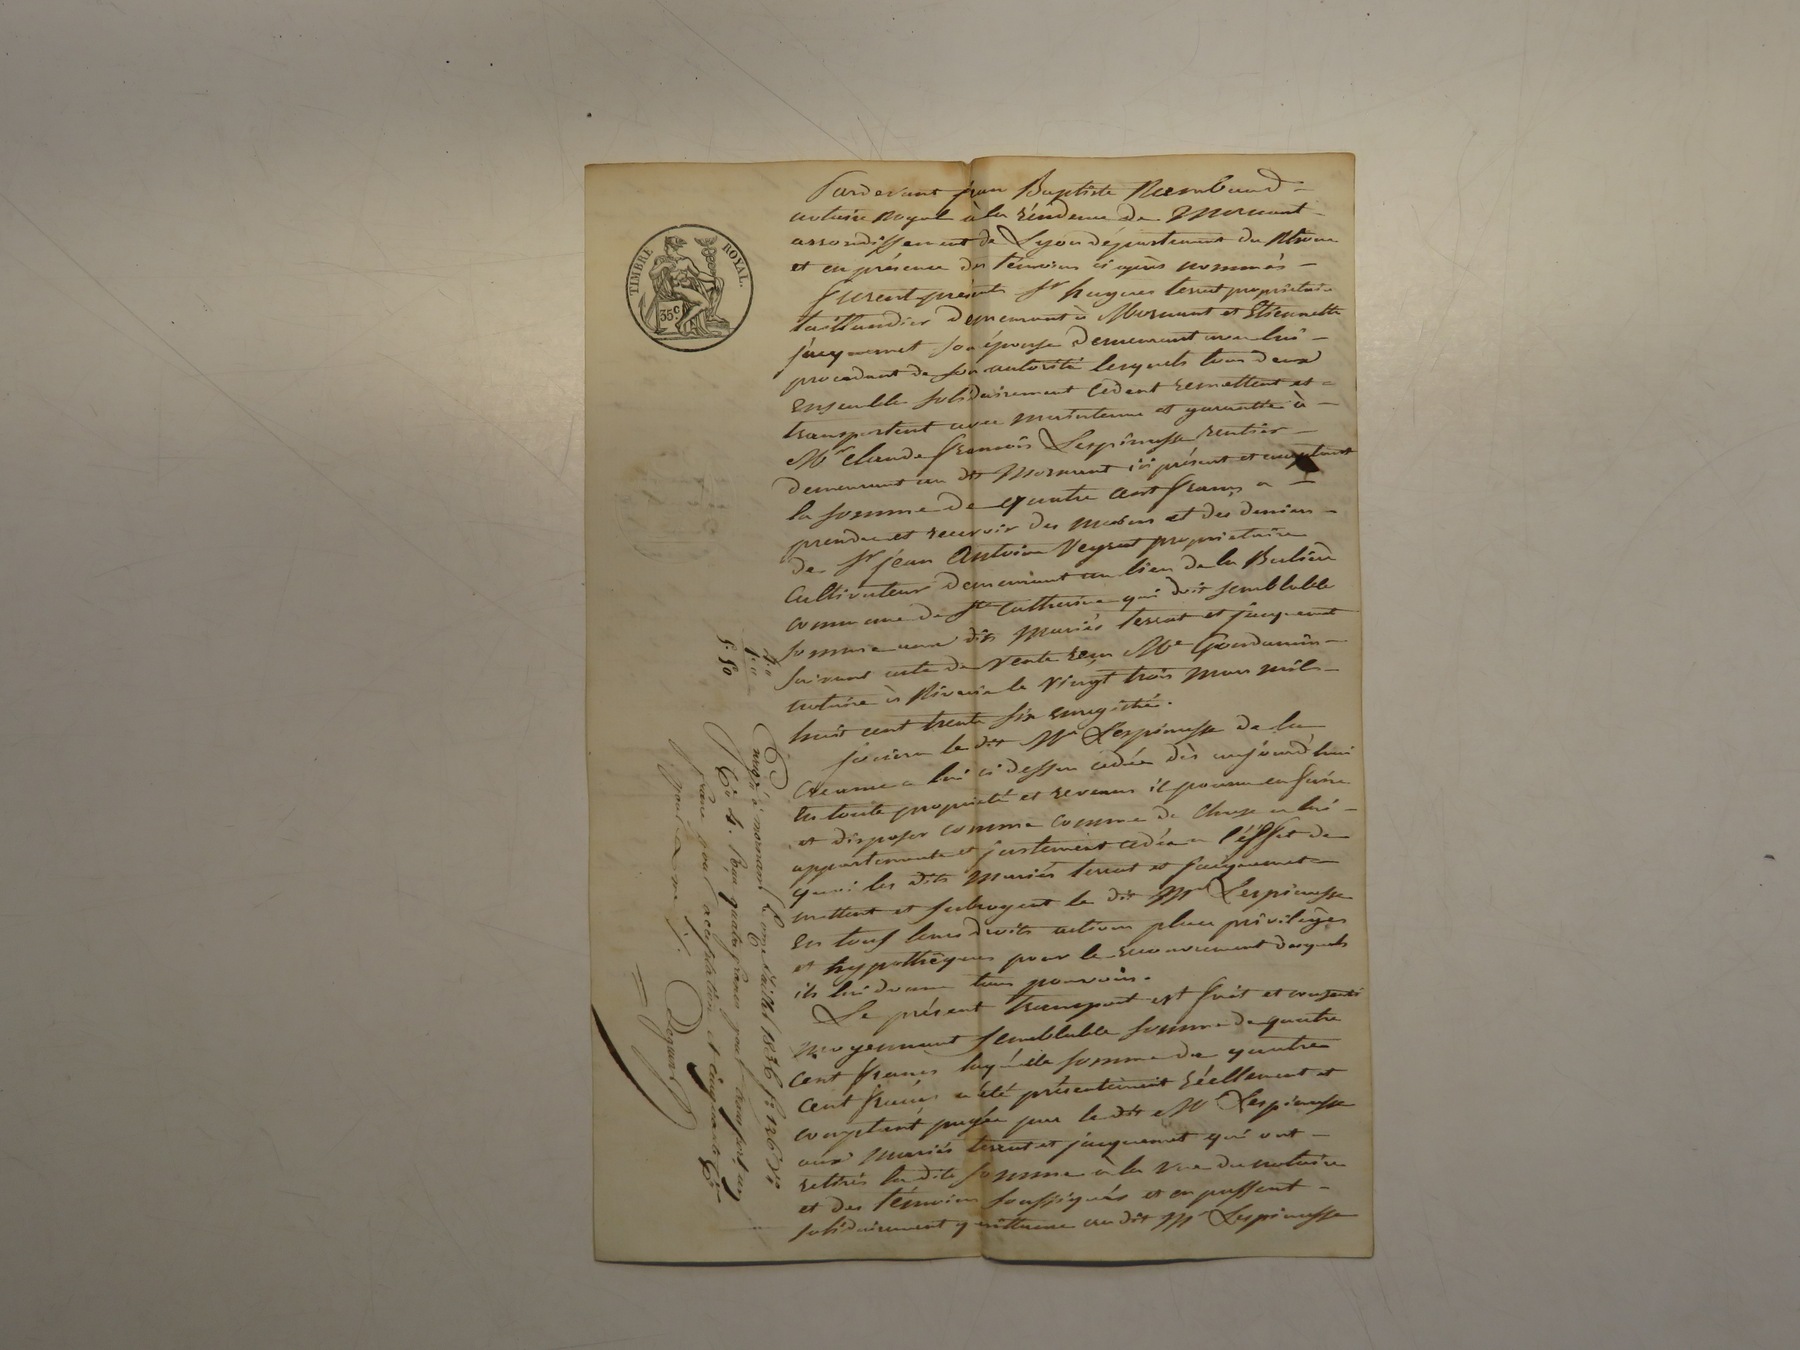 TIMBRE ROYAL.
35 c.
Pardevant jean Baptiste Rambaud
notaire Royal à la résidence de Mornant
arrondissement de Lyon département du Rhône
et en présence des témoins ci après nommés
furent présents Sr hugues terrat propriétaire
taillandier demeurant à Mornant et Etiennette
jacquemet son épouse demeurant avec lui
procedant de son autorité lesquels tous deux
Ensemble solidairement Cedent remettent et
transportent avec maintenue et garantie à
Mr Claude françois Lespinasse rentier
demeurant au dit Mornant ici présent et acceptant
la somme de quatre cent francs a
prendre et recevoir des mains et des deniers
de Sr jean Antoine Veyrat propriétaire
Cultivateur demeurant au lieu de la
commune de Ste Catherine qui doit semblable
somme aux dits Mariés terrat et jacquemet
suivant acte de vente reçu Me
notaire à Riverie le vingt trois Mars mil
huit cent trente six enregistré.
jouira le dit Mr Lespinasse de la
Créance a lui ci dessus cedée dès aujourd'hui
En toute propriété et revenus il pourra en faire
et disposer comme comme de Chose a lui
appartenante et justement cedée a l'éffet de
quoi les dits Mariés terrat et jacquemet
mettent et subrogent le dit Mr Lespinasse
En tous leurs droits actions place priviléges
et hypothèques pour le recouvrement desquels
ils lui donnent tous pouvoirs.
Le présent transport est fait et consenti
Moyennant semblable somme de quatre
Cent francs laquelle somme de quatre
Cent francs a été présentement réellement et
comptant payée par le dit Mr Lespinasse
aux Mariés terrat et jacquemet qui ont
retirés la dite somme à la vue du notaire
et des témoins soussignés et en passent
solidairement quittance au dit Mr Lespinasse
4.0
1.50
5.50
Enregé à mornant 1836 fo 126
Co 4. Reçu quatre francs pour transport, un
franc pour et cinquante Cme
pour